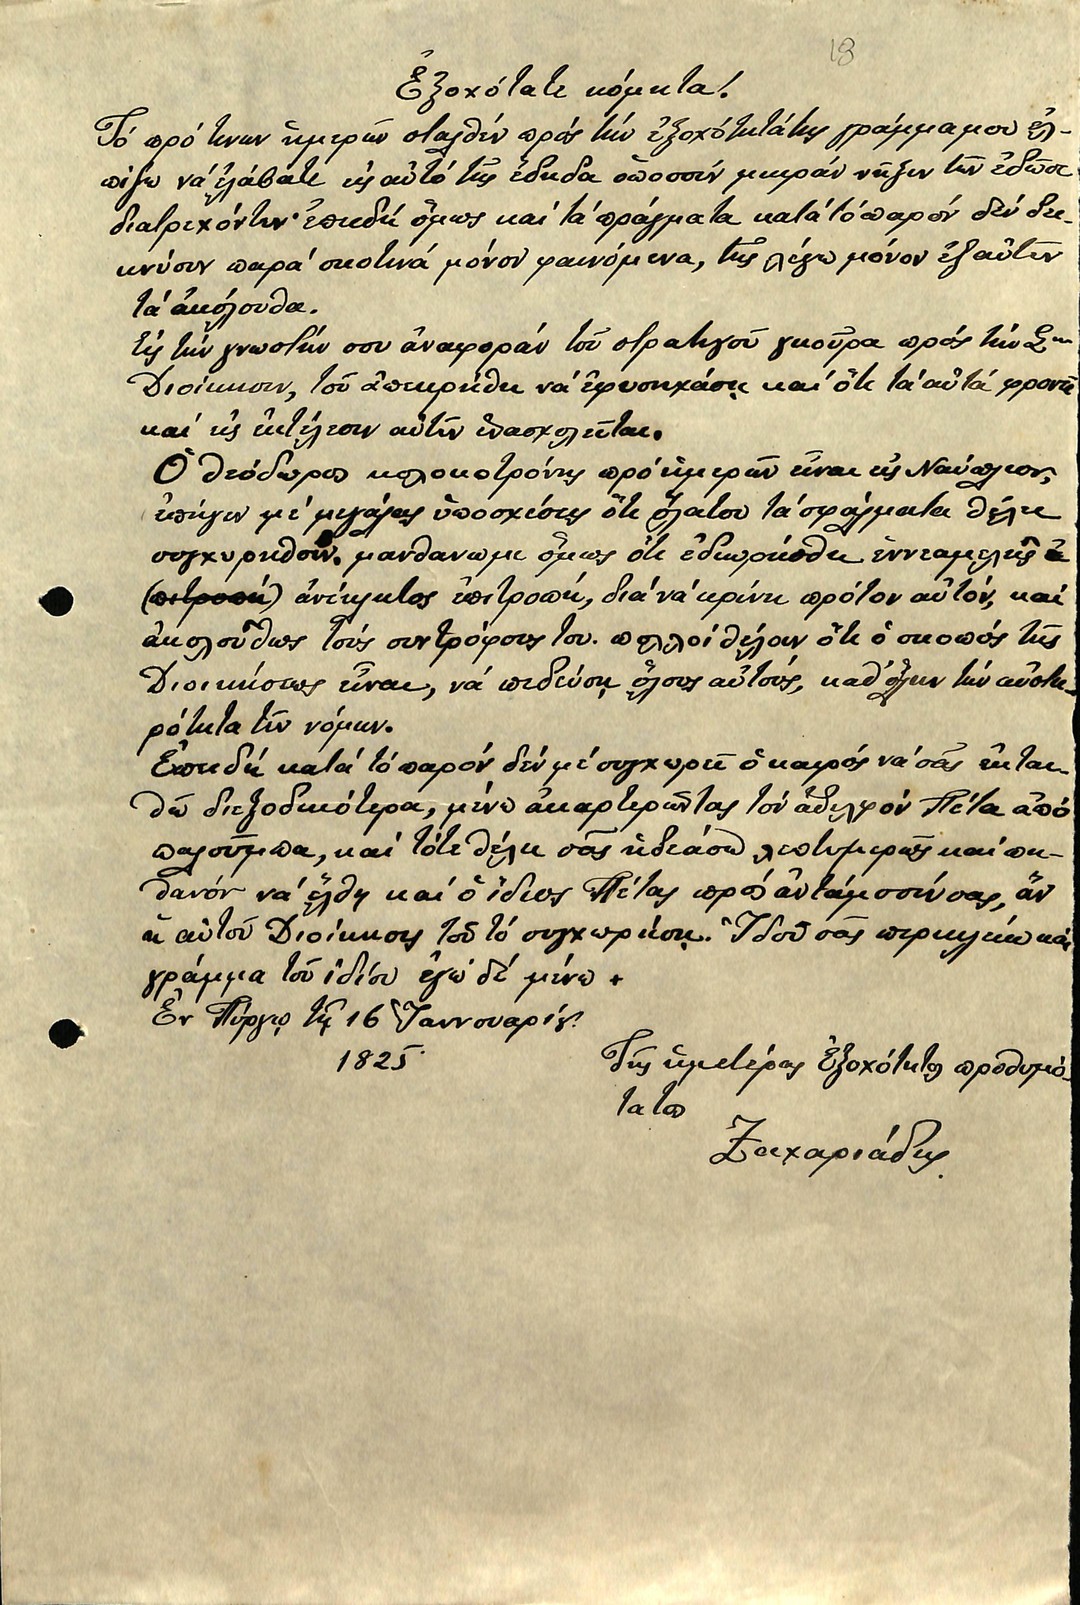 18
Ἐξοχότατε κόμητα!
Τό πρό τινων ἡμερῶν σταλθέν πρός τήν ἐξοχότητά της γράμμα μου ἐλ-
πίζω νά ἐλάβατε εἰς αὐτό τῆς ἔδιδα ὁπωσοῦν μικράν νύξιν τῶν ἐδῶσε
διατρεχόντων· ἐπειδή ὅμως καί τά πράγματα κατά τό παρόν δέν δει-
κνύουν παρά σκοτινά μόνον φαινόμενα, τῆς λέγω μόνον ἐξ αὐτῶν
τά ἀκόλουθα.
Εἰς τήν γνωστήν σου ἀναφοράν τοῦ στρατηγοῦ γκοῦρα πρός τήν Σ.
Διοίκησιν, τοῦ ἀπεκρίθη νά ἐφησυχάσῃ καί ὅτι τά αὐτά φρονεῖ
καί εἰς ἐκτέλεσιν αὐτῶν ἐνασχολεῖται.
Ὁ θεόδωρος κολοκοτρόνης πρό ἡμερῶν εἶναι εἰς Ναύπλιον,
ἐπῆγεν μέ μεγάλας ὑποσχέσεις ὅτι ὅλα του τά σφάλματα θέλει
συγχυρηθοῦν. μανθάνωμε ὅμως ὅτι ἐδιωρίσθη ἐννεαμελής ἐ
(πιτροπή) ἀνέκκλητος ἐπιτροπή, διά νά κρίνῃ πρότον αὐτόν, καί
ἀκολούθως τούς συντρόφους του. πολλοί θέλουν ὅτι ὁ σκοπός τῆς
Διοικήσεως εἶναι, νά πεδεύσῃ ὅλους αὐτούς, καθ' ὅλην τήν αὐστη-
ρότητα τῶν νόμων.
Ἐπειδή κατά τό παρόν δέν μέ συγχωρεῖ ὁ καιρός νά σᾶς ἐκταν-
θῶ διεξοδικότερα, μένω ἀκαρτερῶντας τόν ἀδελφόν Πέτα ἀπό
, καί τότε θέλει σᾶς ἠδεάσω λεπτυμερῶς καί πι-
θανόν νά ἔλθῃ καί ὁ ἴδιος Πέτας πρός ἀντάμοσίν σας, ἄν
ἡ αὐτοῦ Διοίκησις τοῦ τό συγχωρήσῃ. Ἰδοῦ σᾶς περικλείω καί
γράμμα τοῦ ἰδίου ἐγώ δέ μένω +
Ἐν Πύργῳ τῇ 16 Ἰαννουαρίῳ.
1825
Τῆς ἡμετέρας Ἐξοχότητος προθυμό-
τατος
Ζαχαριάδης